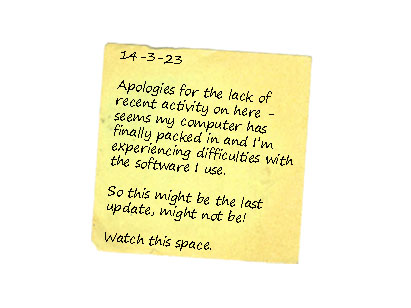 14-3-23
Apologies for the lack of
recent activity on here -
seems my computer has
finally packed in and I'm
experiencing difficulties with
the software I use.
So this might be the last
update, might not be!
Watch this space.